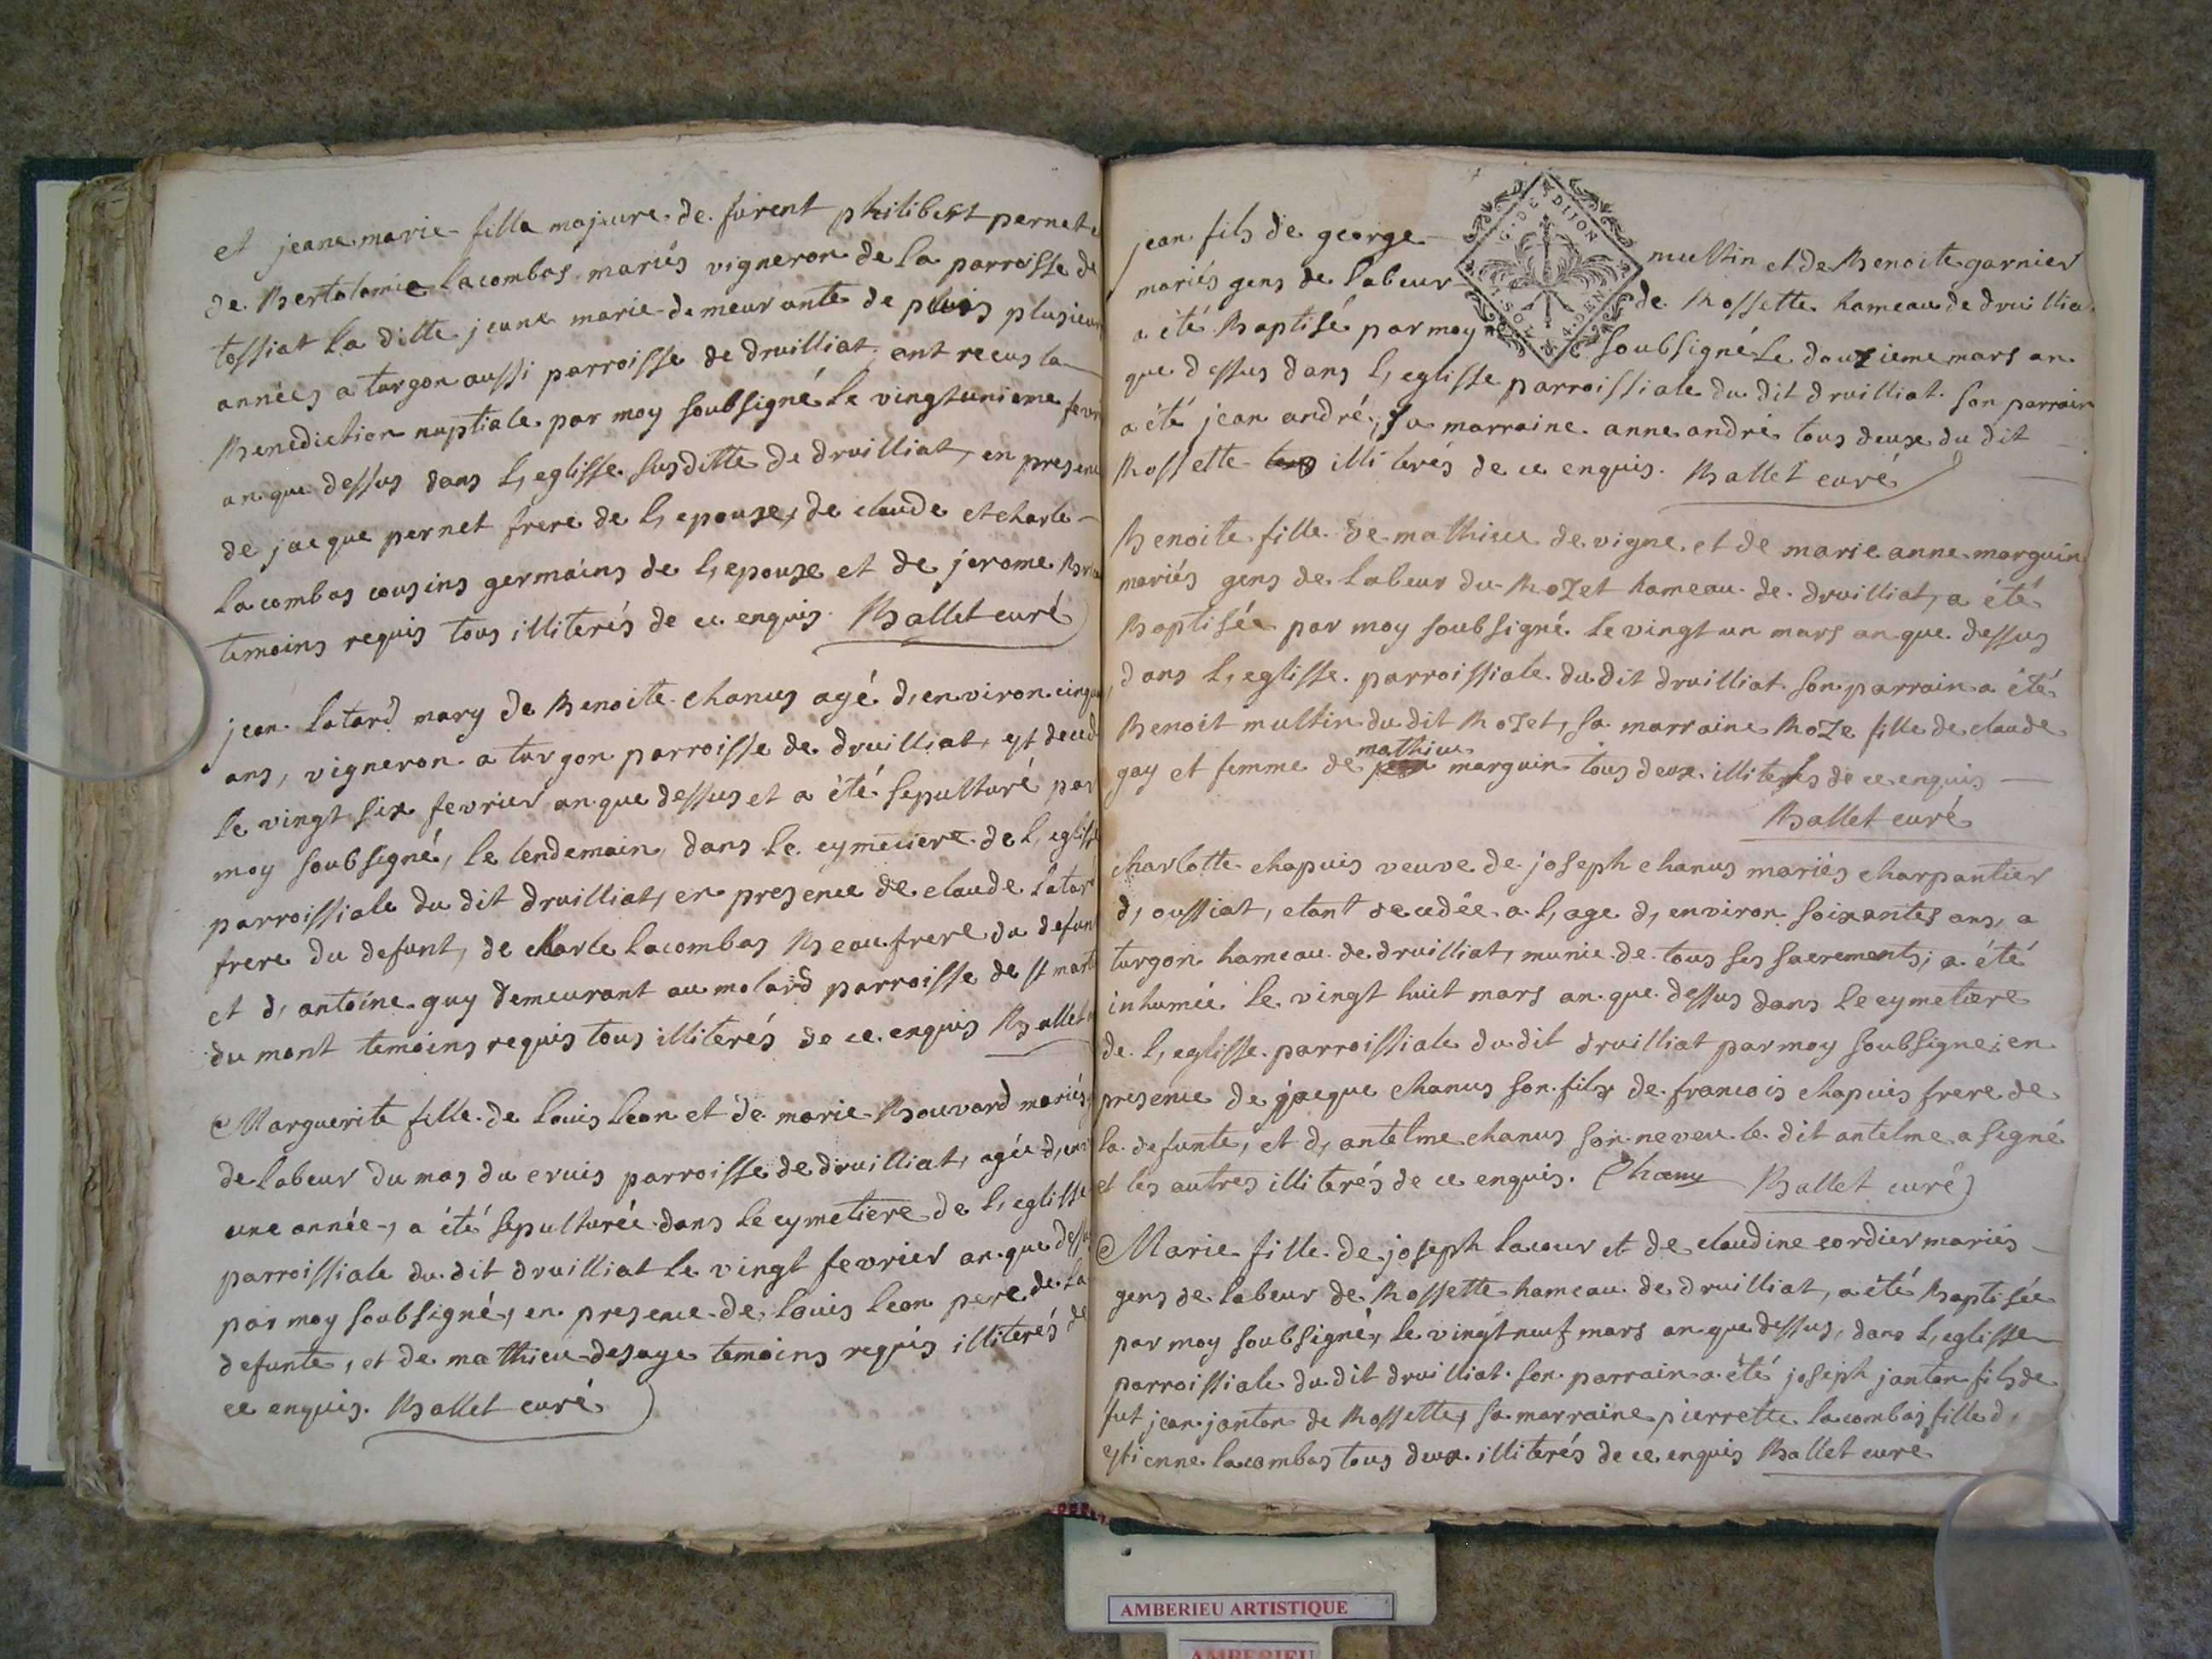 et jeane marie fille majeure de furent philibert pernet
de Bertolomie lacombas mariés vigneron de la parroisse de
tossiat la ditte jeane marie demeurante de puis plusieur
années a turgon aussi parroisse de druilliat ont recus la
Benediction nuptiale par moy soubsigné le vingtunieme fevri
an que dessus dans l'eglisse susditte de druilliat, en presen
de jacque pernet frere de l'epouse, de claude et charle
lacombas cousins germains de l'epouse et de jerome
temoins requis tous illiterés de ce enquis. Ballet curé
jean latard mary de Benoite chanus agé d'environ cinqu
ans, vigneron a turgon parroisse de druilliat, est deced
le vingt six fevrier an que dessus et a été sepulturé par
moy soubsigné, le lendemain, dans le cymetiere de l'eglisse
parroissiale du dit druilliat, en presence de claude latar
frere du defunt, de charle lacombas Beaufrere du defun
et d'antoine guy demeurant au molard parroisse de st marti
du mont temoins requis tous illiterés de ce enquis Ballet
Marguerite fille de louis leon et de marie Bouvard mariés
de labeur du mas du cruis parroisse de druilliat, agée d'env
une année, a été sepulturée dans le cymetiere de l'eglisse
parroissiale du dit druilliat le vingt fevrier an que dessu
par moy soubsigné, en presence de louis leon pere de la
defunte, et de mathieu desaye temoins requis illiterés de
ce enquis. Ballet curé
G. DE DIJON
1. SOL 4. DEN
jean fils de george multin et de Benoite garnier
mariés gens de labeur de Rossette hameau de druillia
a été Baptisé par moy soubsigné le douzieme mars an
que dessus dans l'eglisse parroissiale du dit druilliat. son parrain
a été jean andré, sa marraine anne andré tous deux du dit
Rossette illiterés de ce enquis. Ballet curé
Benoite fille de mathieu de vigne et de marie anne marguin
mariés gens de labeur du Rozet hameau de druilliat, a été
Baptisée par moy soubsigné le vingt un mars an que dessus
dans l'eglisse parroissiale du dit druilliat son parrain a été
Benoit multin du dit Rozet, sa marraine Roze fille de claude
gay et femme de mathieu marguin tous deux illiterés de ce enquis
Ballet curé
charlotte chapuis veuve de joseph chanus mariés charpantier
d'oussiat, etant decedée a l'age d'environ soixantes ans, a
turgon hameau de druilliat, munie de tous ses sacrements, a été
inhumée le vingt huit mars an que dessus dans le cymetiere
de l'eglisse parroissiale du dit druilliat par moy soubsigné, en
presence de jacque chanus son fils, de francois chapuis frere de
la defunte, et d'antelme chanus son neveu le dit antelme a signé
et les autres illiterés de ce enquis. Chanu Ballet curé
Marie fille de joseph lacour et de claudine cordier mariés
gens de labeur de Rossette hameau de druilliat, a été Baptisée
par moy soubsigné, le vingt neuf mars an que dessus, dans l'eglisse
parroissiale du dit druilliat. son parrain a été joseph janton fils de
fut jean janton de Rossette, sa marraine pierrette lacombas fille d'
estienne lacombas tous deux illiterés de ce enquis Ballet curé
AMBERIEU ARTISTIQUE
AMBERIEU